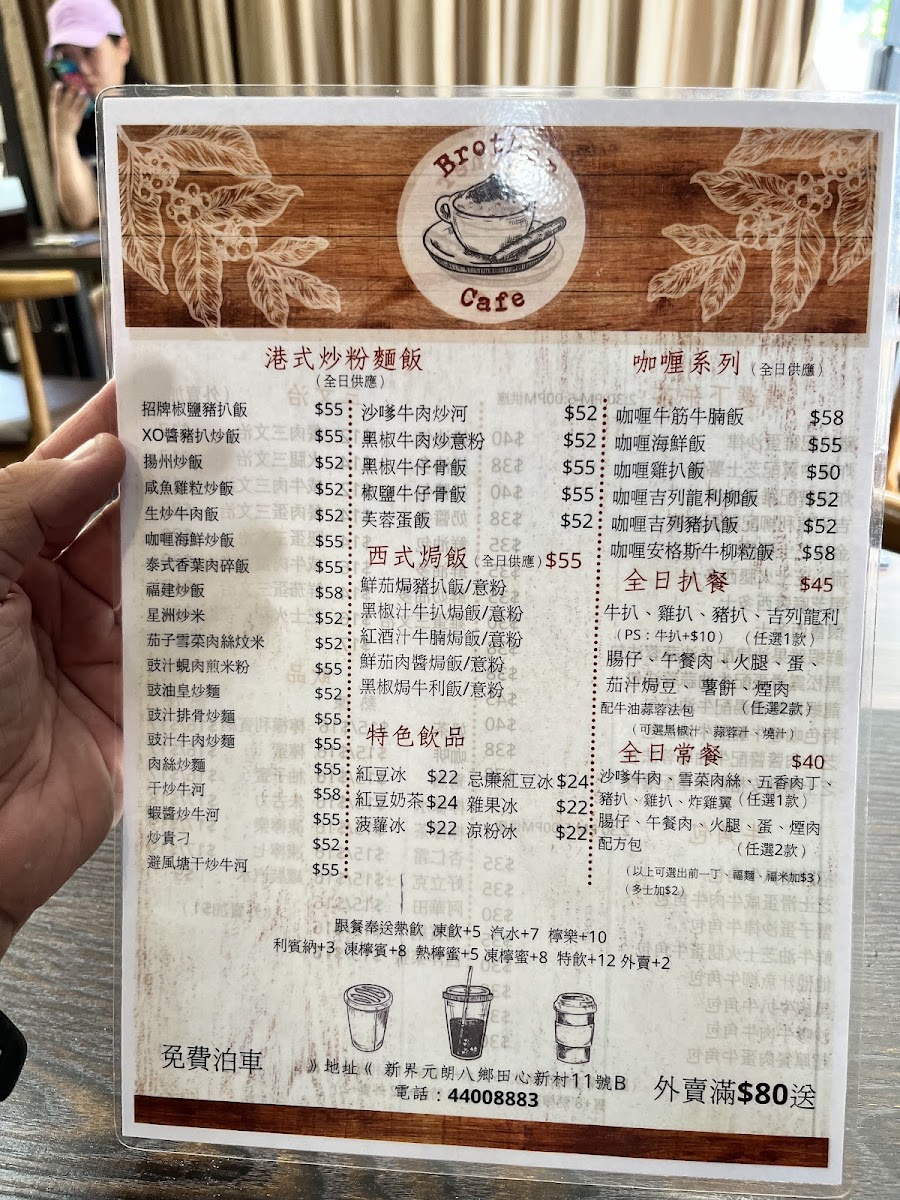 Brothers
Cafe
港式炒粉麵飯
(全日供應)
招牌椒鹽豬扒飯 $55
XO醬豬扒炒飯 $55
揚州炒飯 $52
咸魚雞粒炒飯 $52
生炒牛肉飯 $52
咖喱海鮮炒飯 $55
泰式香葉肉碎飯 $55
福建炒飯 $58
星洲炒米 $52
茄子雪菜肉絲炆米 $52
豉汁蜆肉煎米粉 $55
豉油皇炒麵 $52
豉汁排骨炒麵 $55
豉汁牛肉炒麵 $55
肉絲炒麵 $55
干炒牛河 $58
蝦醬炒牛河 $55
炒貴刁 $52
避風塘干炒牛河 $55
沙嗲牛肉炒河 $52
黑椒牛肉炒意粉 $52
黑椒牛仔骨飯 $55
椒鹽牛仔骨飯 $55
芙蓉蛋飯 $52
西式焗飯(全日供應)$55
鮮茄焗豬扒飯/意粉
黑椒汁牛扒焗飯/意粉
紅酒汁牛腩焗飯/意粉
鮮茄肉醬焗飯/意粉
黑椒焗牛利飯/意粉
特色飲品
紅豆冰 $22 忌廉紅豆冰$24
紅豆奶茶$24 雜果冰 $22
菠蘿冰 $22 涼粉冰 $22
咖喱系列(全日供應)
咖喱牛筋牛腩飯 $58
咖喱海鮮飯 $55
咖喱雞扒飯 $50
咖喱吉列龍利柳飯 $52
咖喱吉列豬扒飯 $52
咖喱安格斯牛柳粒飯 $58
全日扒餐 $45
牛扒、雞扒、豬扒、吉列龍利
(PS:牛扒+$10) (任選1款)
腸仔、午餐肉、火腿、蛋、
茄汁焗豆、薯餅、煙肉
配牛油蒜蓉法包 (任選2款)
(可選黑椒汁、蒜蓉汁、燒汁)
全日常餐 $40
沙嗲牛肉、雪菜肉絲、五香肉丁、
豬扒、雞扒、炸雞翼(任選1款)
腸仔、午餐肉、火腿、蛋、煙肉
配方包 (任選2款)
(以上可選出前一丁、福麵、福米加$3)
(多士加$2)
跟餐奉送熱飲 凍飲+5 汽水+7 檸樂+10
利賓納+3 凍檸賓+8 熱檸蜜+5 凍檸蜜+8 特飲+12 外賣+2
免費泊車
》地址《 新界元朗八鄉田心新村11號B
電話:44008883
外賣滿$80送